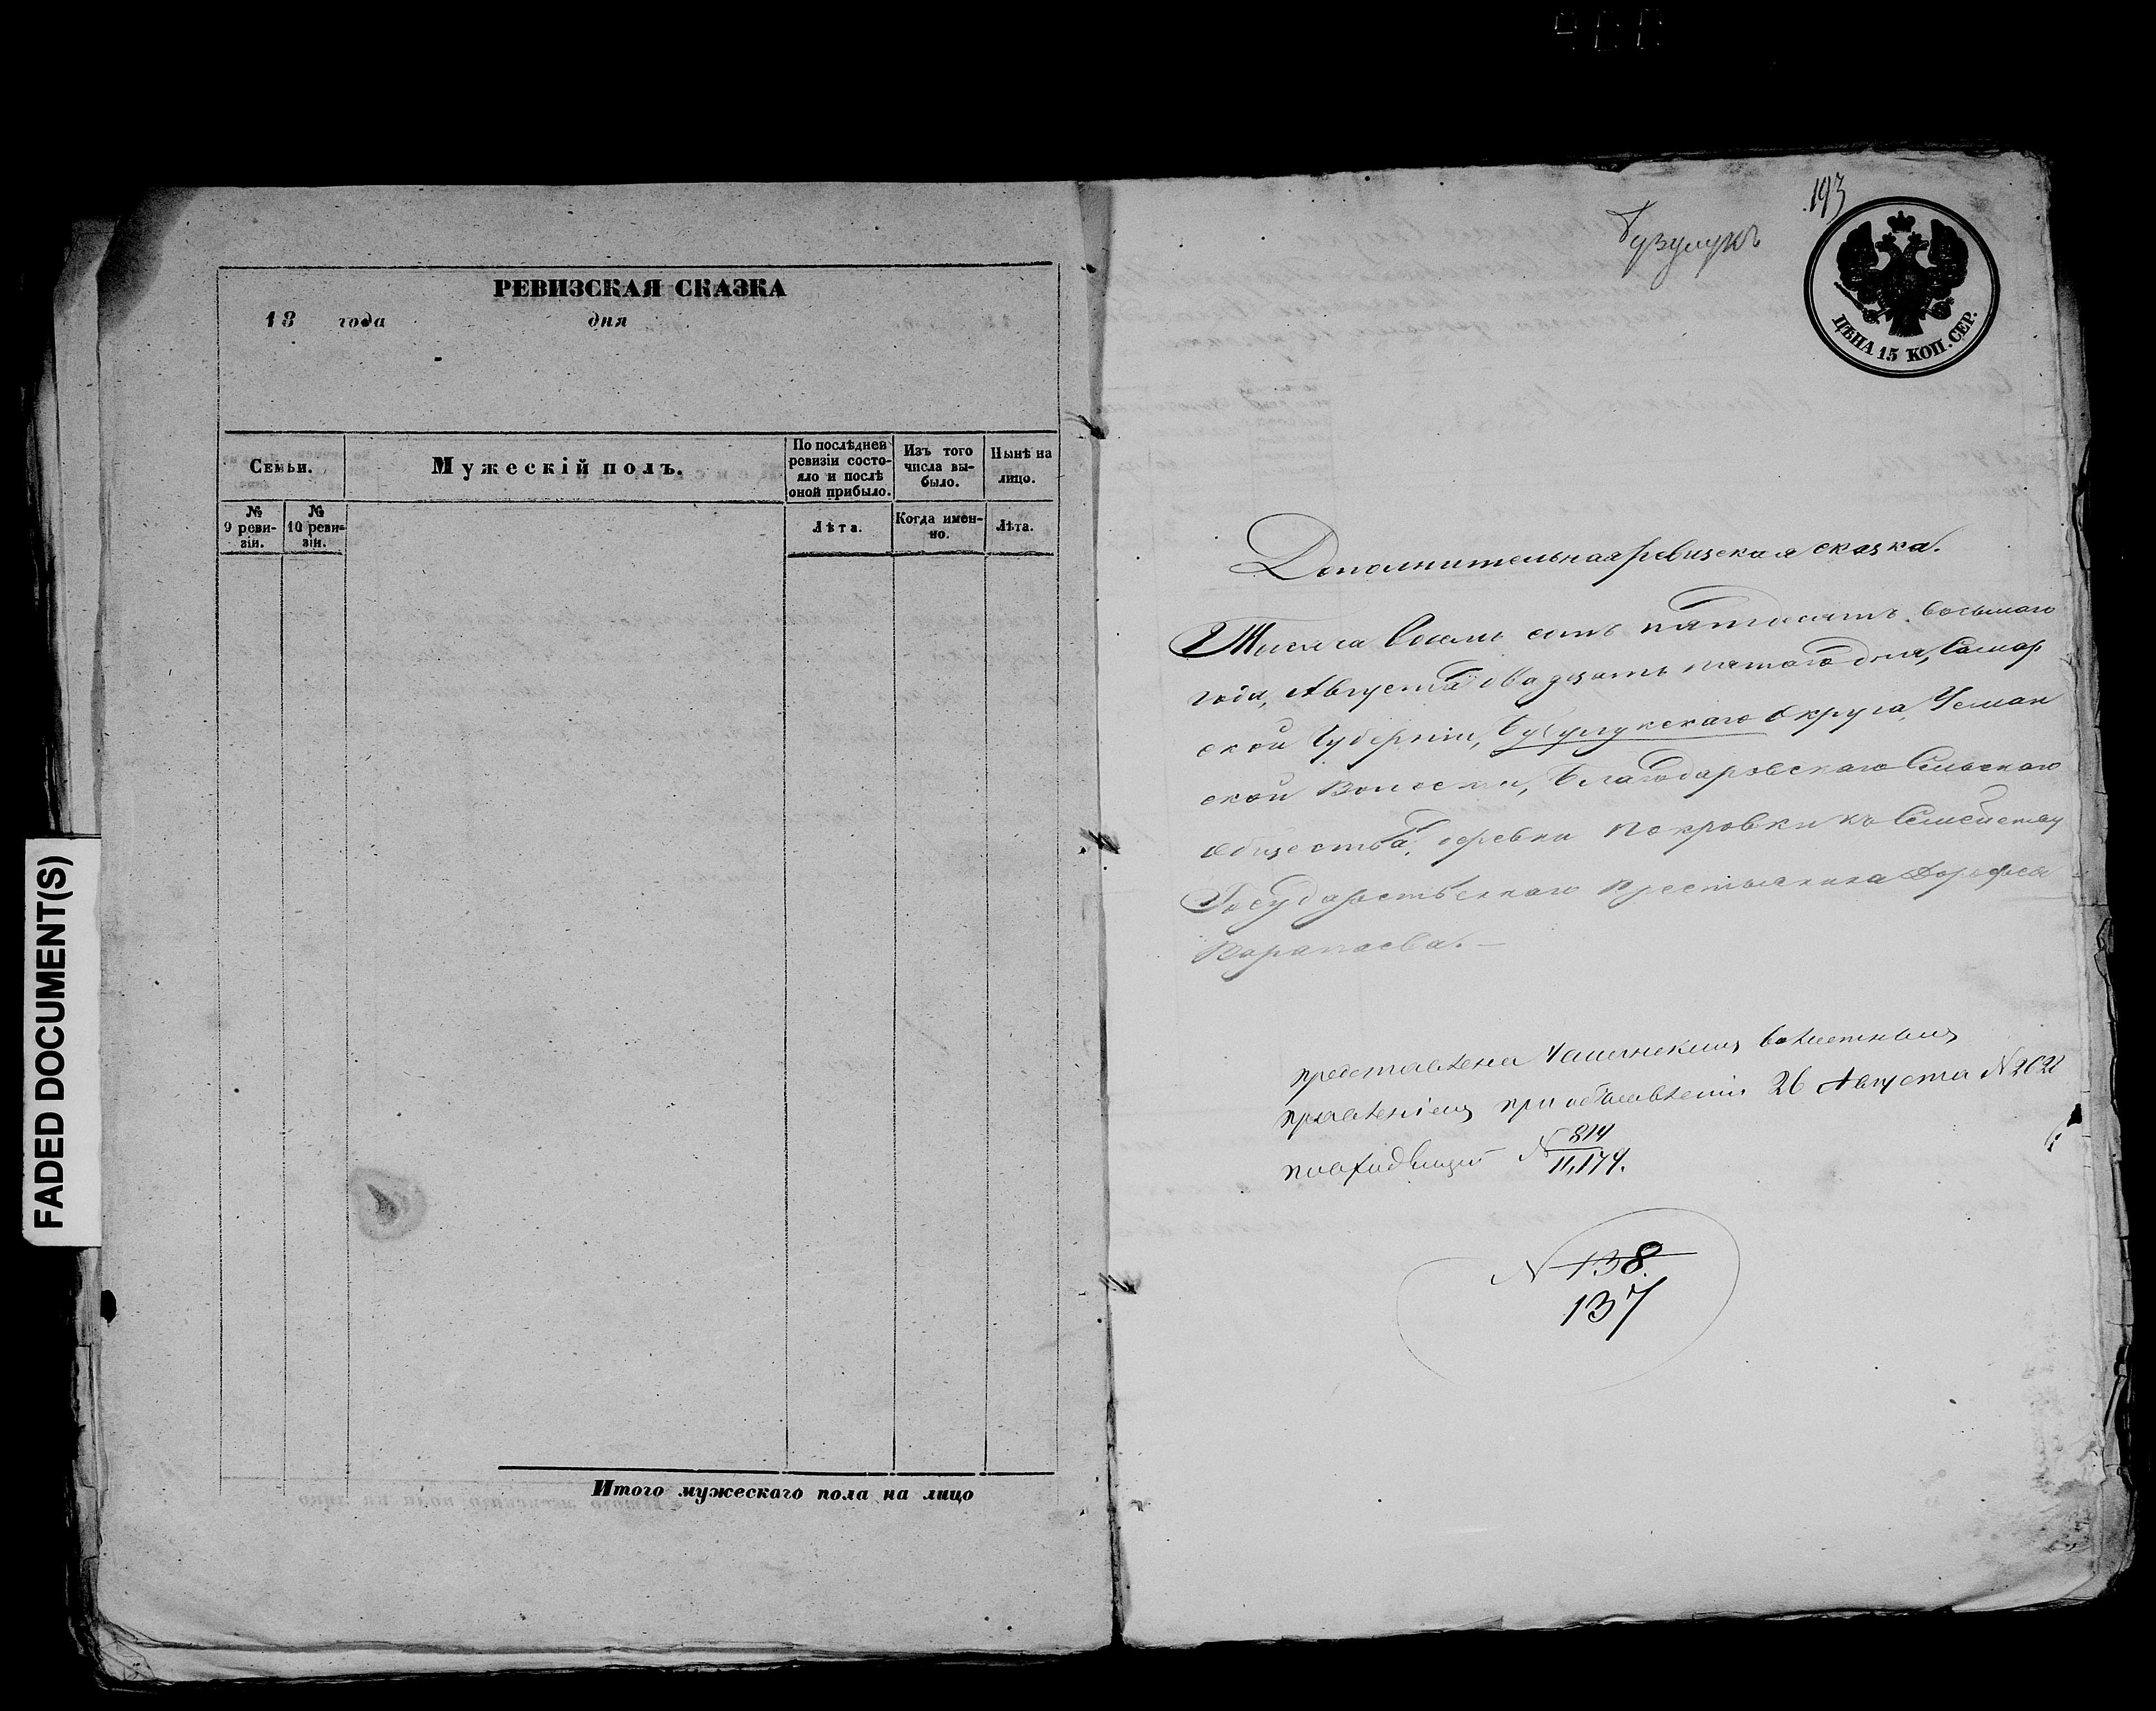 FADED DOCUMENT(S)
РЕВИЗСКАЯ СКАЗКА
18 года дня
Семьи.
Мужескій полъ.
По послѣдней
ревизіи состо-
яло и послѣ
оной прибыло.
Изъ того
числа вы-
было.
Нынѣ на
лицо.
№
9 реви-
зіи.
№
10 реви-
зіи.
Лѣта.
Когда имен-
но.
Лѣта.
Итого мужескаго пола на лицо
193
Бузулукъ
ЦѢНА 15 КОП. СЕР.
Дополнительная ревизская сказка.
Тысяча восемь сотъ пятдесятъ восьмаго
года, Августа двадцать пятаго дня, Самар
ской Губерніи, Бузулукскаго Округа,
ской Волости, Благодаровскаго Сельскаго
Общества, деревни Покровки къ Семейству
Государственнаго Крестьянина Дорофея
представлена волостнымъ
правленіемъ при объявленіи 26 Августа №
№ 814
11,174.
№ 138.
137